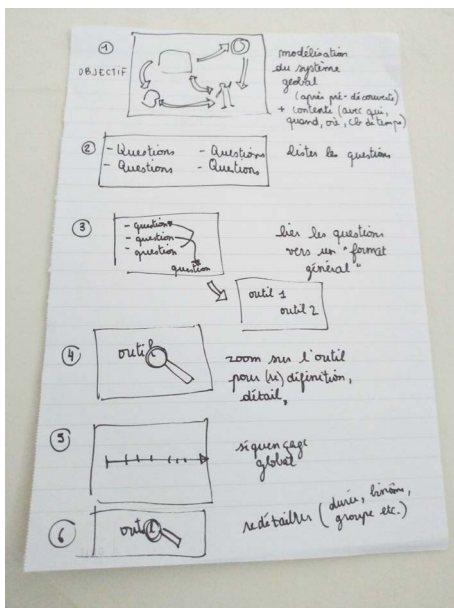 ①
OBJECTIF
modélisation
du système
global
(après pré-découverte)
+ contexte (avec qui,
quand, où, cb de temps)
②
- Questions - Questions
- Questions - Questions
lister les questions
③
- question
- question
- question
question
lier les questions
vers un "format
général"
outil 1
outil 2
④
outil
zoom sur l'outil
pour (re)définition,
détail,
⑤
séquençage
global
⑥
outil
redétailler (durée, binôme,
groupe etc.)